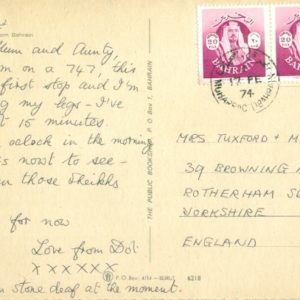 from Bahrain
Mum and Aunty
I'm on a 747, this
first stop and I'm
ing my legs - I've
15 minutes.
oclock in the morning
is most to see -
in those Sheikhs
for now
Love from Dot
x x x x x x
m stone deaf at the moment.
THE PUBLIC BOOKSHOP P. O. Box 1, BAHRAIN
P.O. Box
6218
20
BAHRAIN
20
BAHRAIN
17 FE
74
MRS TUXFORD & M
39 BROWNING
ROTHERHAM S
YORKSHIRE
ENGLAND